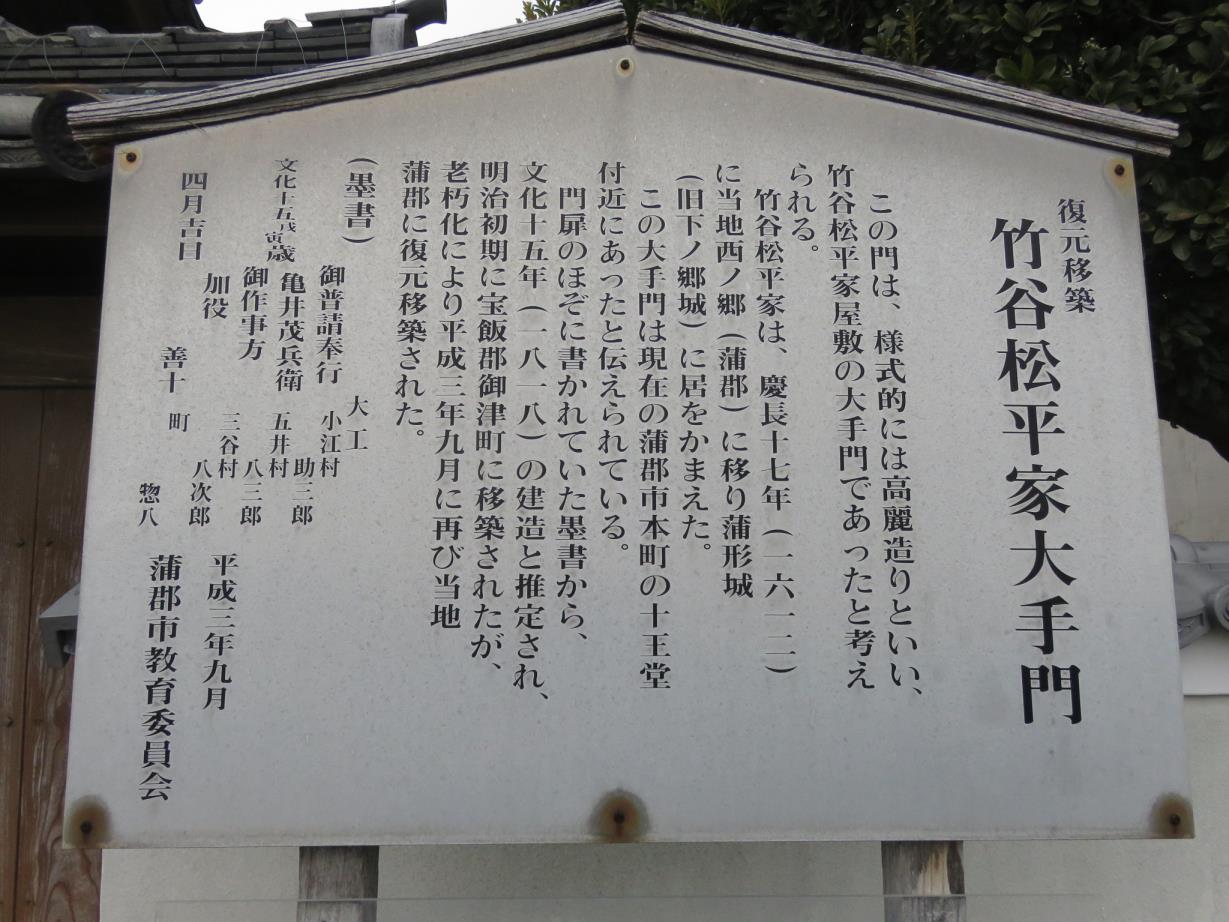 復元移築
竹谷松平家大手門
この門は、様式的には高麗造りといい、
竹谷松平家屋敷の大手門であったと考え
られる。
竹谷松平家は、慶長十七年(一六一二)
に当地西ノ郷(蒲郡)に移り蒲形城
(旧下ノ郷城)に居をかまえた。
この大手門は現在の蒲郡市本町の十王堂
付近にあったと伝えられている。
門扉のほぞに書かれていた墨書から、
文化十五年(一八一八)の建造と推定され、
明治初期に宝飯郡御津町に移築されたが、
老朽化により平成三年九月に再び当地
蒲郡に復元移築された。
(墨書)
大工
御普請奉行 小江村
助三郎
文化十五戊寅歳 亀井茂兵衛 五井村
御作事方 八三郎
加役 三谷村
八次郎
四月吉日 善十 町
惣八
平成三年九月
蒲郡市教育委員会